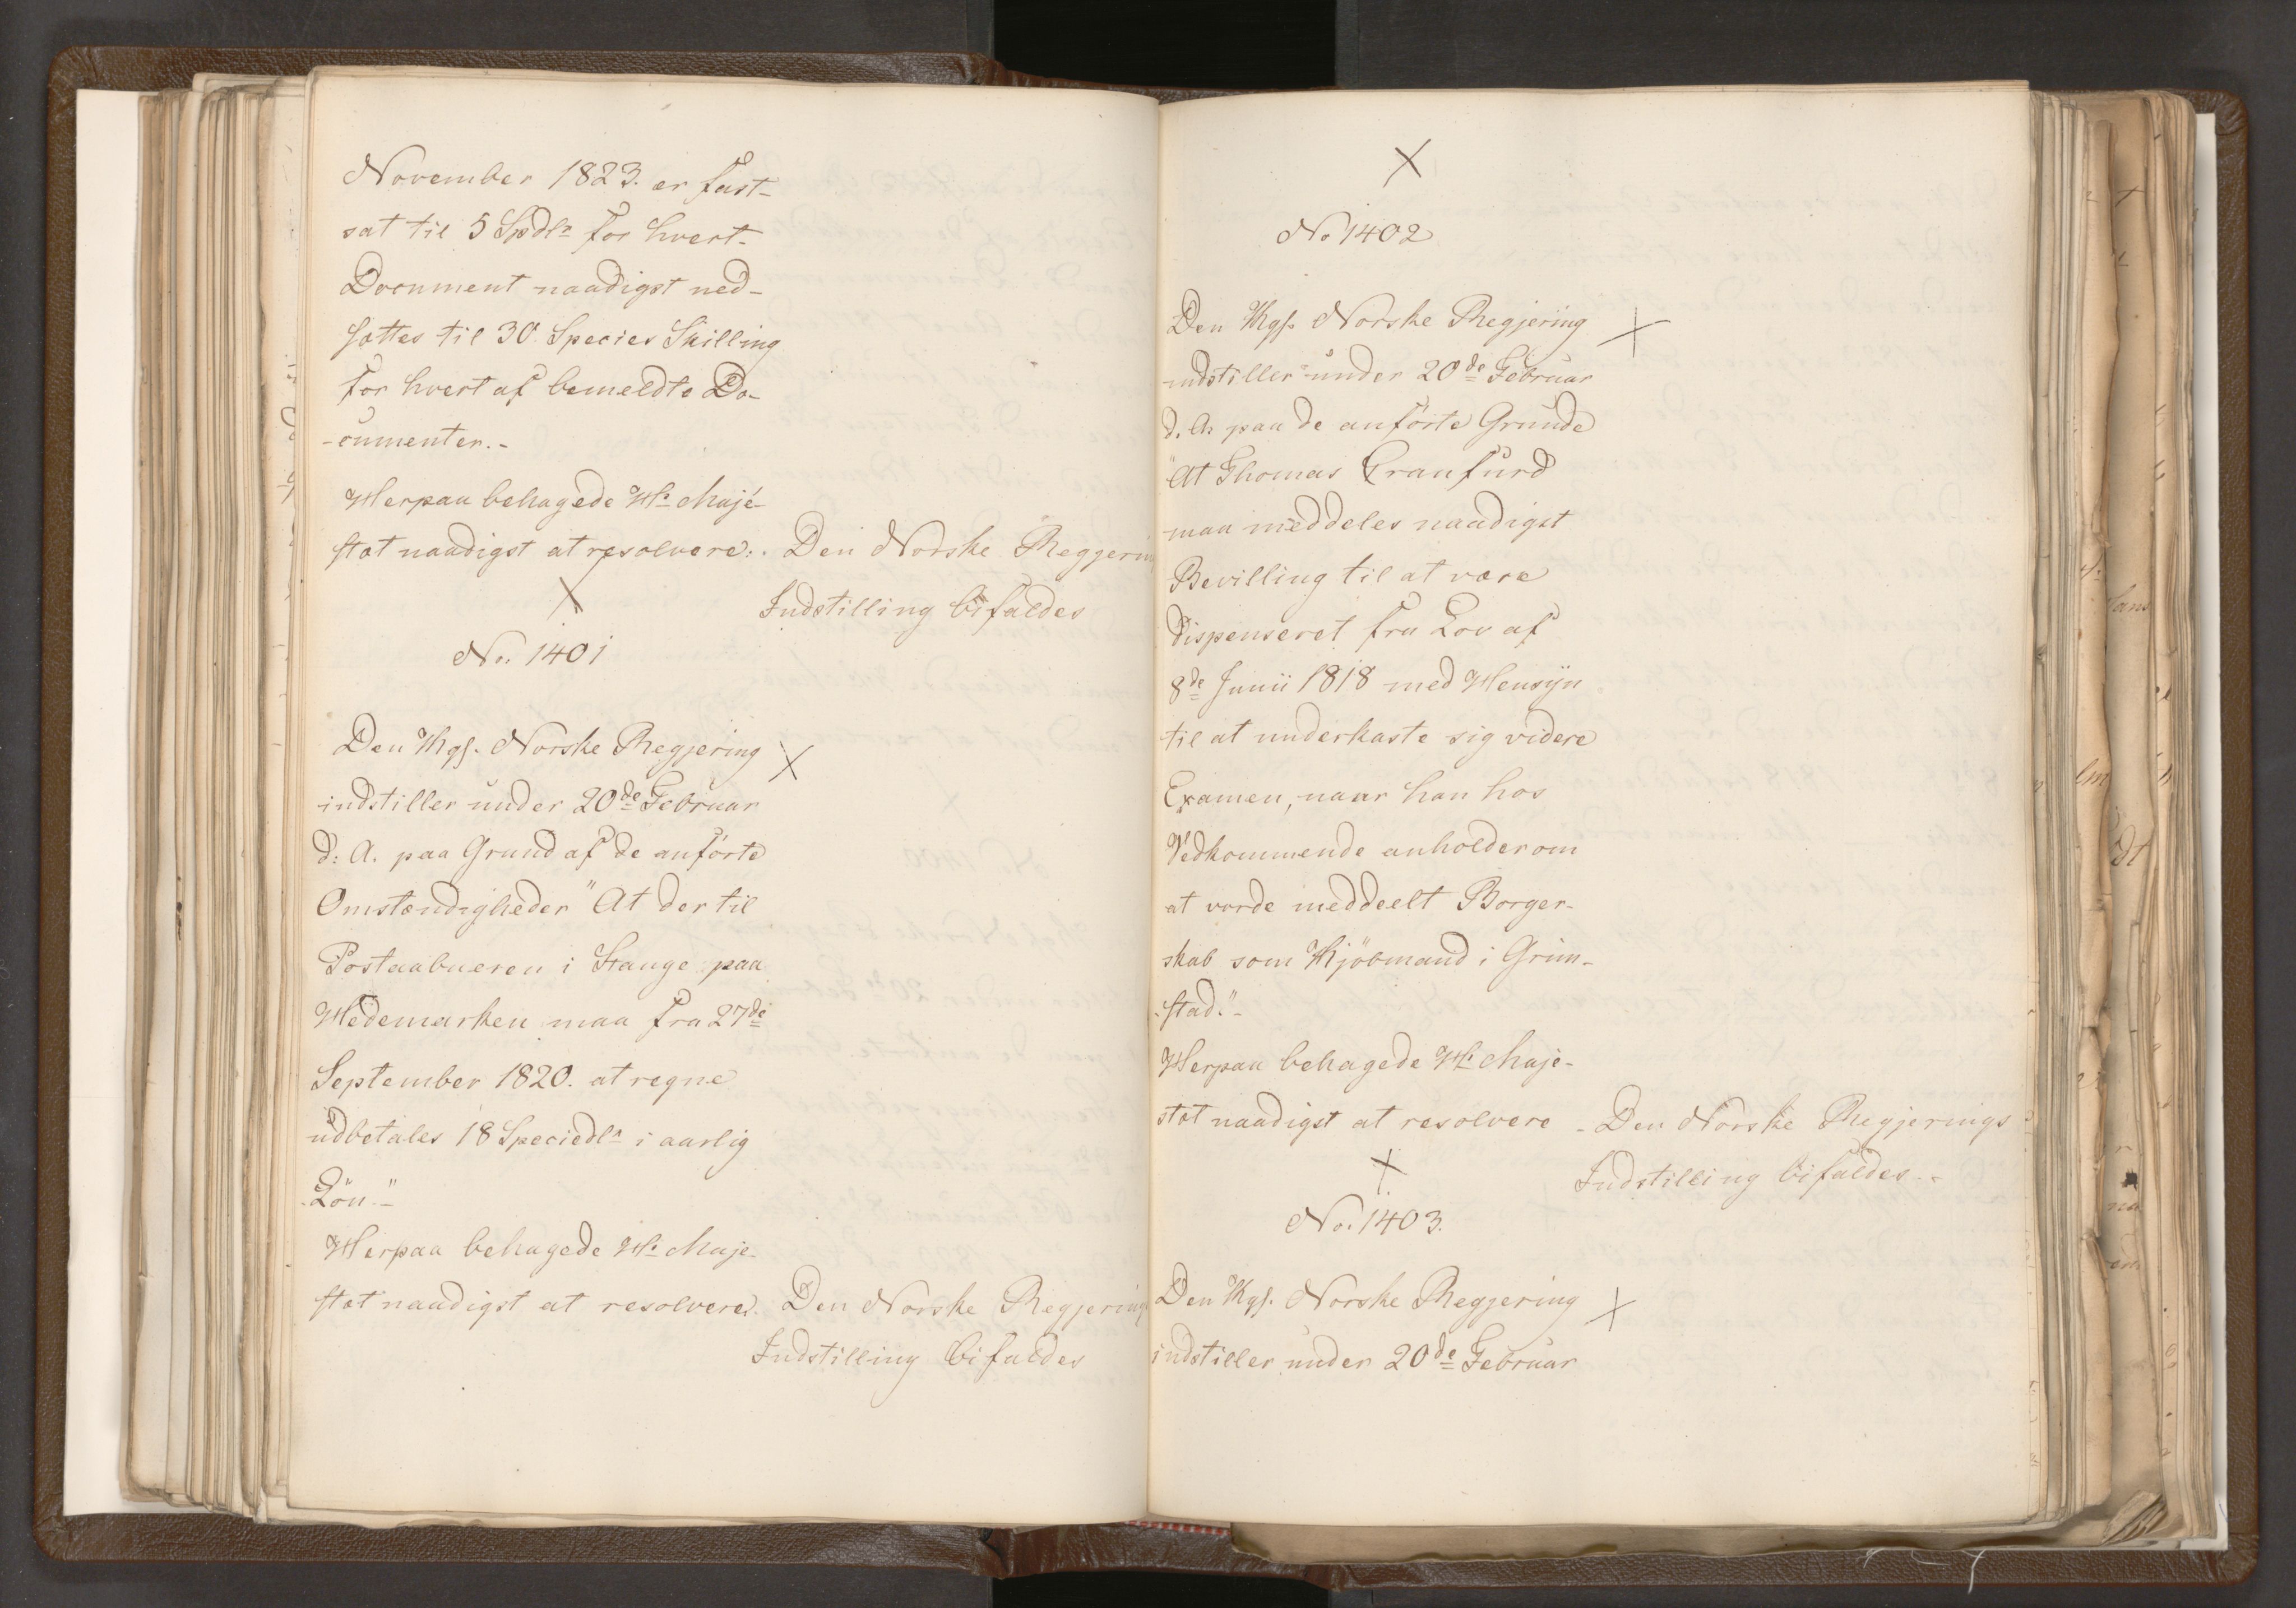 November 1823. er fast-
sat til 5 Spdlr for hvert
Document naadigst ned-
sættes til 30 Species Skilling
for hvert af bemeldte Do-
-cumenter.-
Herpaa behagede Hs Maje-
stæt naadigst at resolvere:. Den Norske Regjering
Indstilling bifaldes
X
No. 1401
Den Kgl. Norske Regjering X
indstiller under 20de Februar
d: A. paa Grund af de anförte
Omstændigheder "At der til
Postaabneren i Stange paa
Hedemarken maa fra 27de
September 1820. at regne
udbetales 18 Speciedlr i aarlig
Lön."-
Herpaa behagede Hs Maje-
stæt naadigst at resolvere. Den Norske Regjerings
Indstilling bifaldes
X
No 1402
Den Kgl. Norske Regjering X
indstiller under 20de Februar
d. A. paa de anförte Grunde
"At Thomas Cranfurd
maa meddeles naadigst
Bevilling til at være
dispenseret fra Lov af
8de Junii 1818 med Hensyn
til at underkaste sig videre
Examen, naar han hos
Vedkommende anholder om
at vorde meddeelt Borger-
skab som Kjöbmand i Grim-
-stad."-
Herpaa behagede Hs Maje-
stæt naadigst at resolvere - Den Norske Regjerings
Indstilling bifaldes.-
X
No. 1403.
Den Kgl. Norske Regjering X
indstiller under 20de Februar